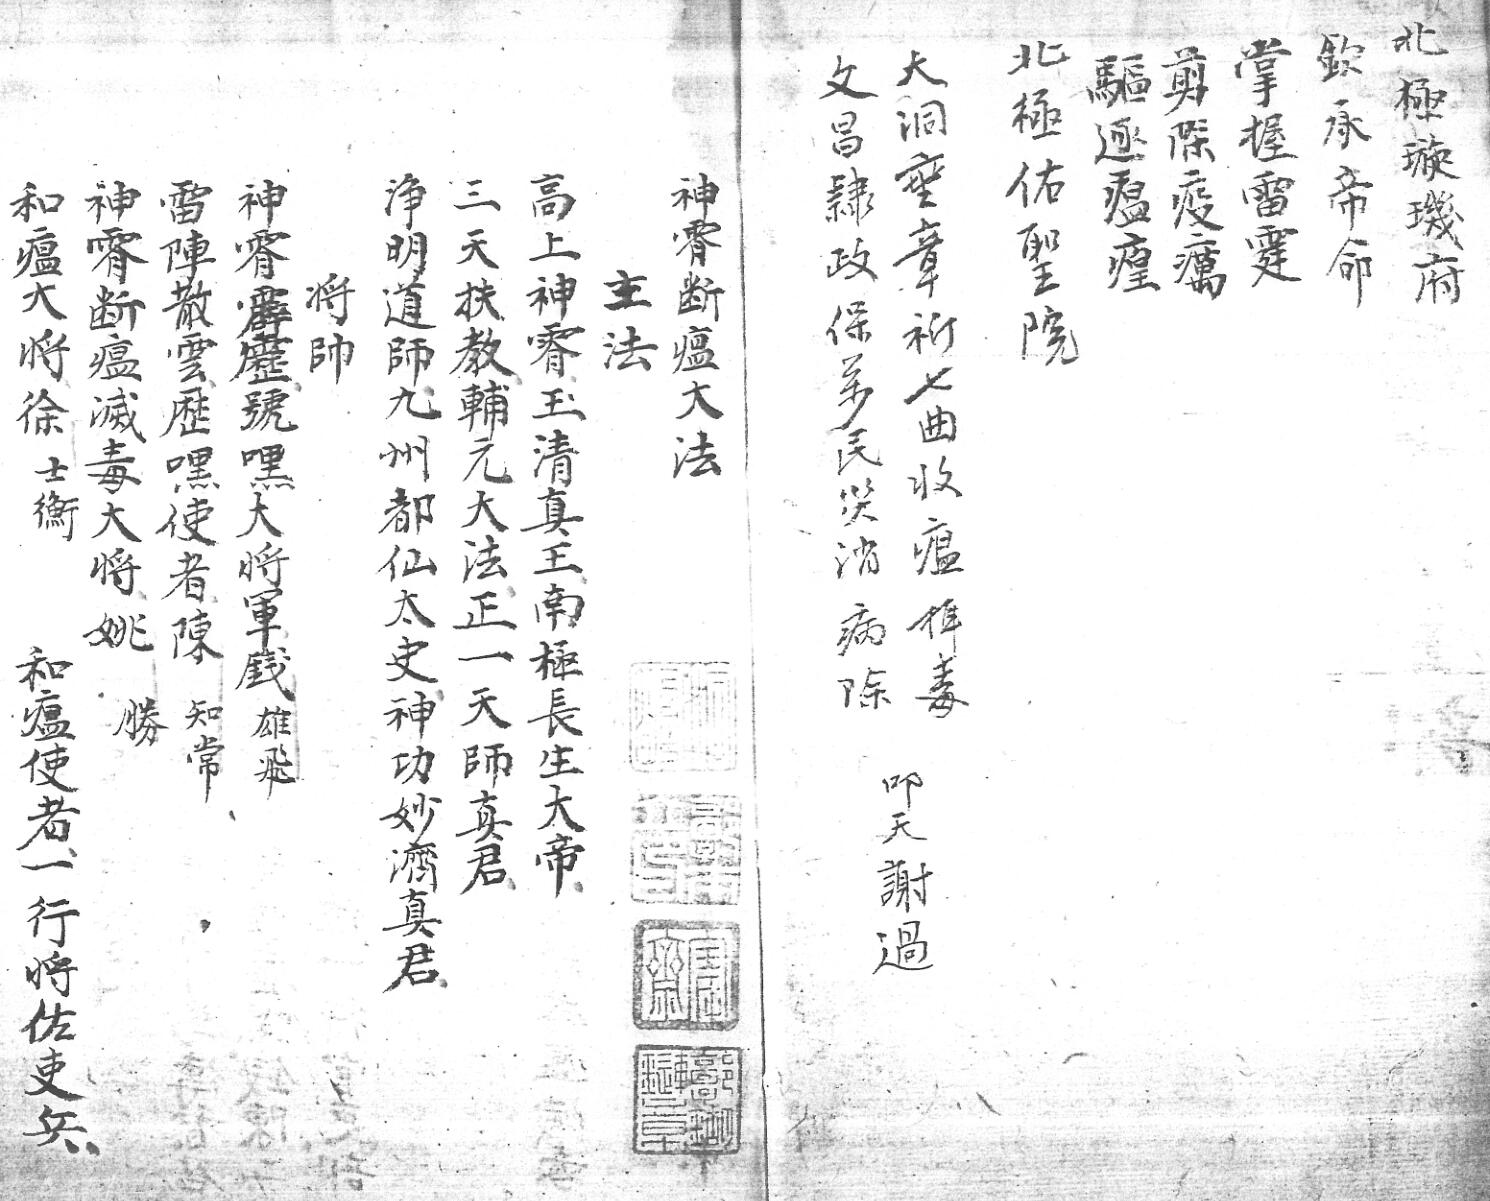 北極璇璣府
欽承帝命
掌握雷霆
剪除疫癘
驅逐瘟㾮
北極佑聖院
大洞靈章祈七曲收瘟攝毒
文昌隸政保萬民災消病除
叩天謝過
神霄斷瘟大法
主法
高上神霄玉清真王南極長生大帝
三天扶教輔元大法正一天師真君
净明道師九州都仙太史神功妙濟真君
将帥
神霄霹靂號嘿大将軍錢雄飛
雷陣散雲歷嘿使者陳知常
神霄断瘟滅毒大将姚勝
和瘟大将徐士衡
和瘟使者一行将佐吏兵